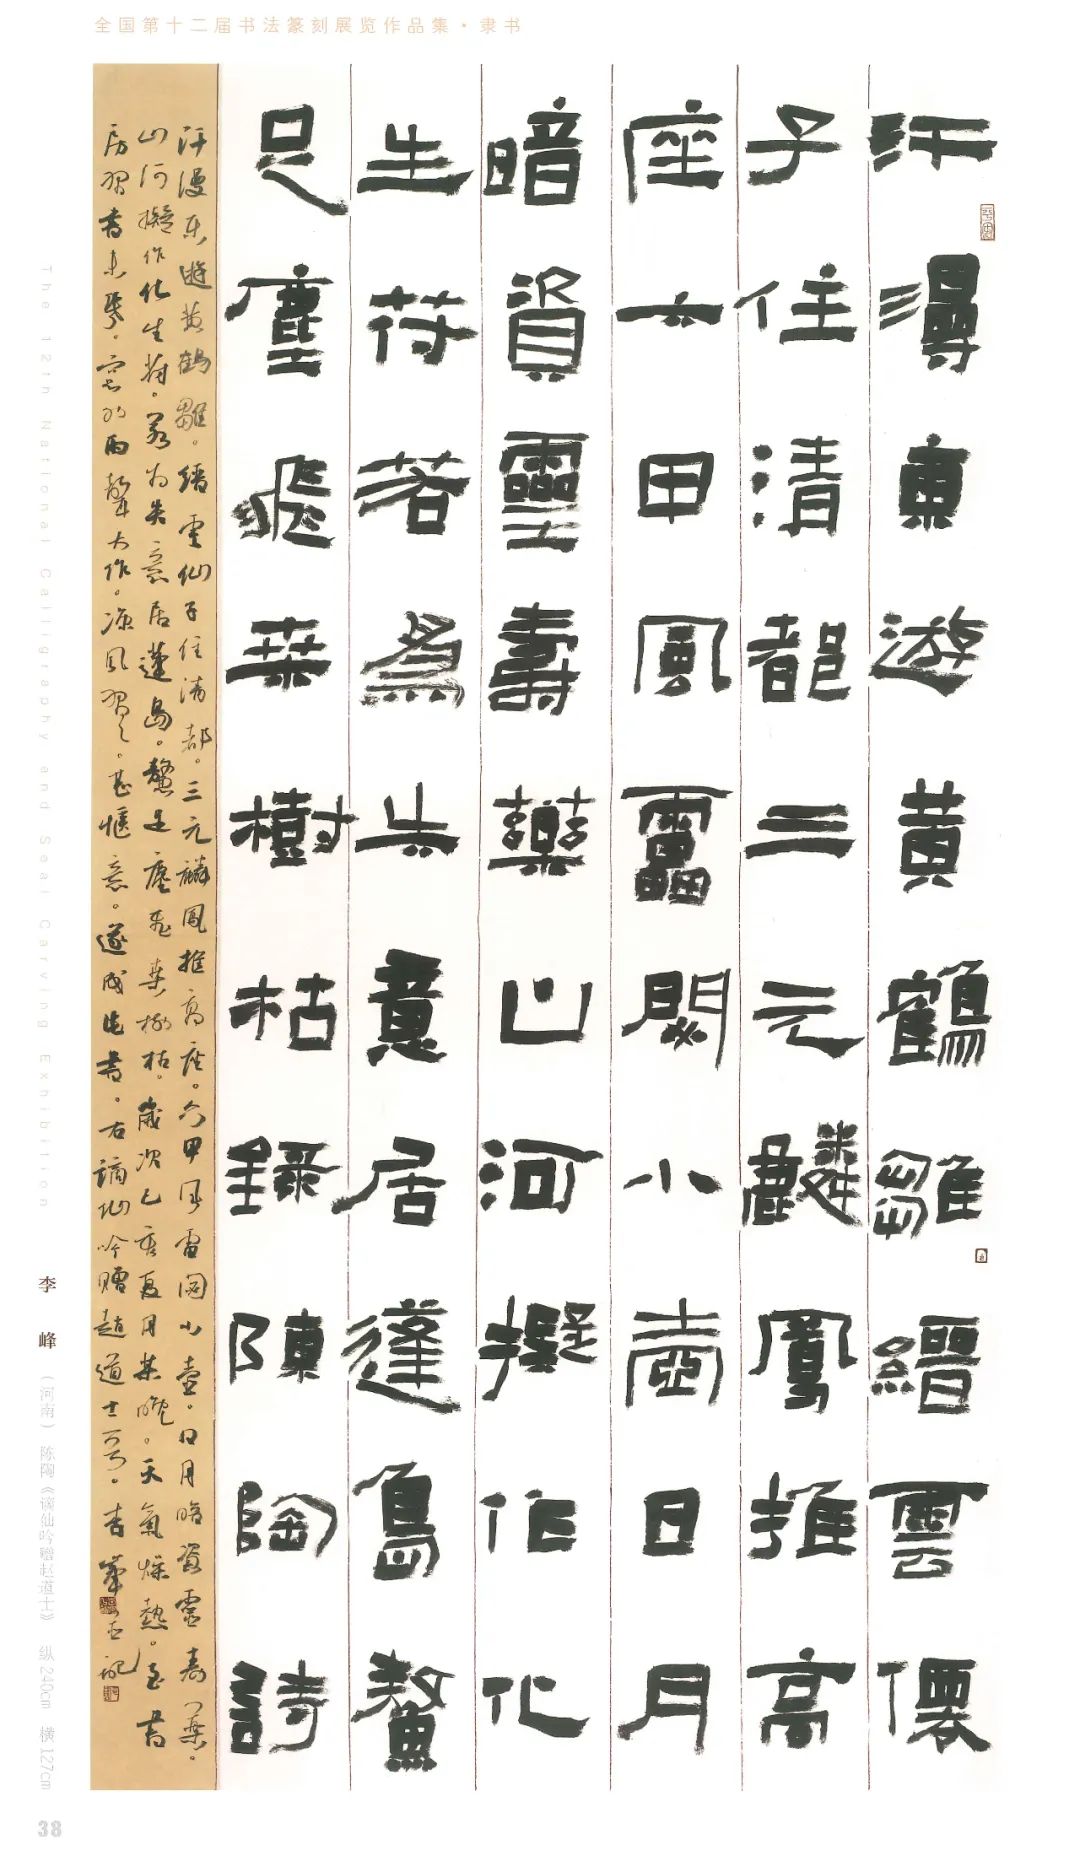 全国第十二届书法篆刻展览作品集·隶书
汗漫東遊黃鶴雛縉雲僊
子住清都三元麟鳳推高
座六甲風雷閟小壺日月
暗資靈壽藥山河擬作化
生符若爲失意居蓬島鼇
足塵飛桑樹枯錄陳陶詩
汗漫東遊黃鶴雛。縉雲仙子住清都。三元麟鳳推高座。六甲風雷閟小壺。日月暗資靈壽藥。
山河擬作化生符。若為失意居蓬島。鼇足塵飛桑樹枯。歲次己亥夏月某晚。天氣燥熱。書
房習書未。雨聲大作。涼風習習。甚愜意。遂成此書。右謫仙吟贈趙道士。李峯並記
The 12th National Calligraphy and Seal Carving Exhibition
李峰（河南） 陈陶《谪仙吟赠赵道士》 纵240cm 横127cm
38